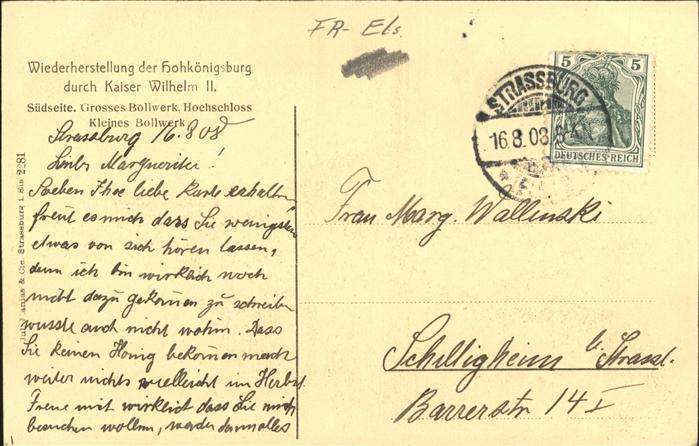 FR- Els.
Wiederherstellung der Hohkönigsburg
durch Kaiser Wilhelm II.
Südseite. Grosses Bollwerk, Hochschloss
Kleines Bollwerk
Strassburg 16.8.08
Liebe Marguerite!
Soeben Ihre liebe Karte erhalten
freut es mich dass Sie wenigstens
etwas von sich hören lassen,
denn ich bin wirklich noch
nicht dazu gekommen zu schreiben
wusste auch nicht wohin. Dass
Sie keinen Honig bekommen macht
weiter nichts vielleicht im Herbst
Freue mich wirklich dass Sie mich
besuchen wollen, werde dann alles
& Cie. Strassburg i. Els 2281
STRASSBURG
16.8.08
5 5
DEUTSCHES REICH
Frau Marg. Wallinski
Schiltigheim b. Strassb.
Barrerstr 14 I